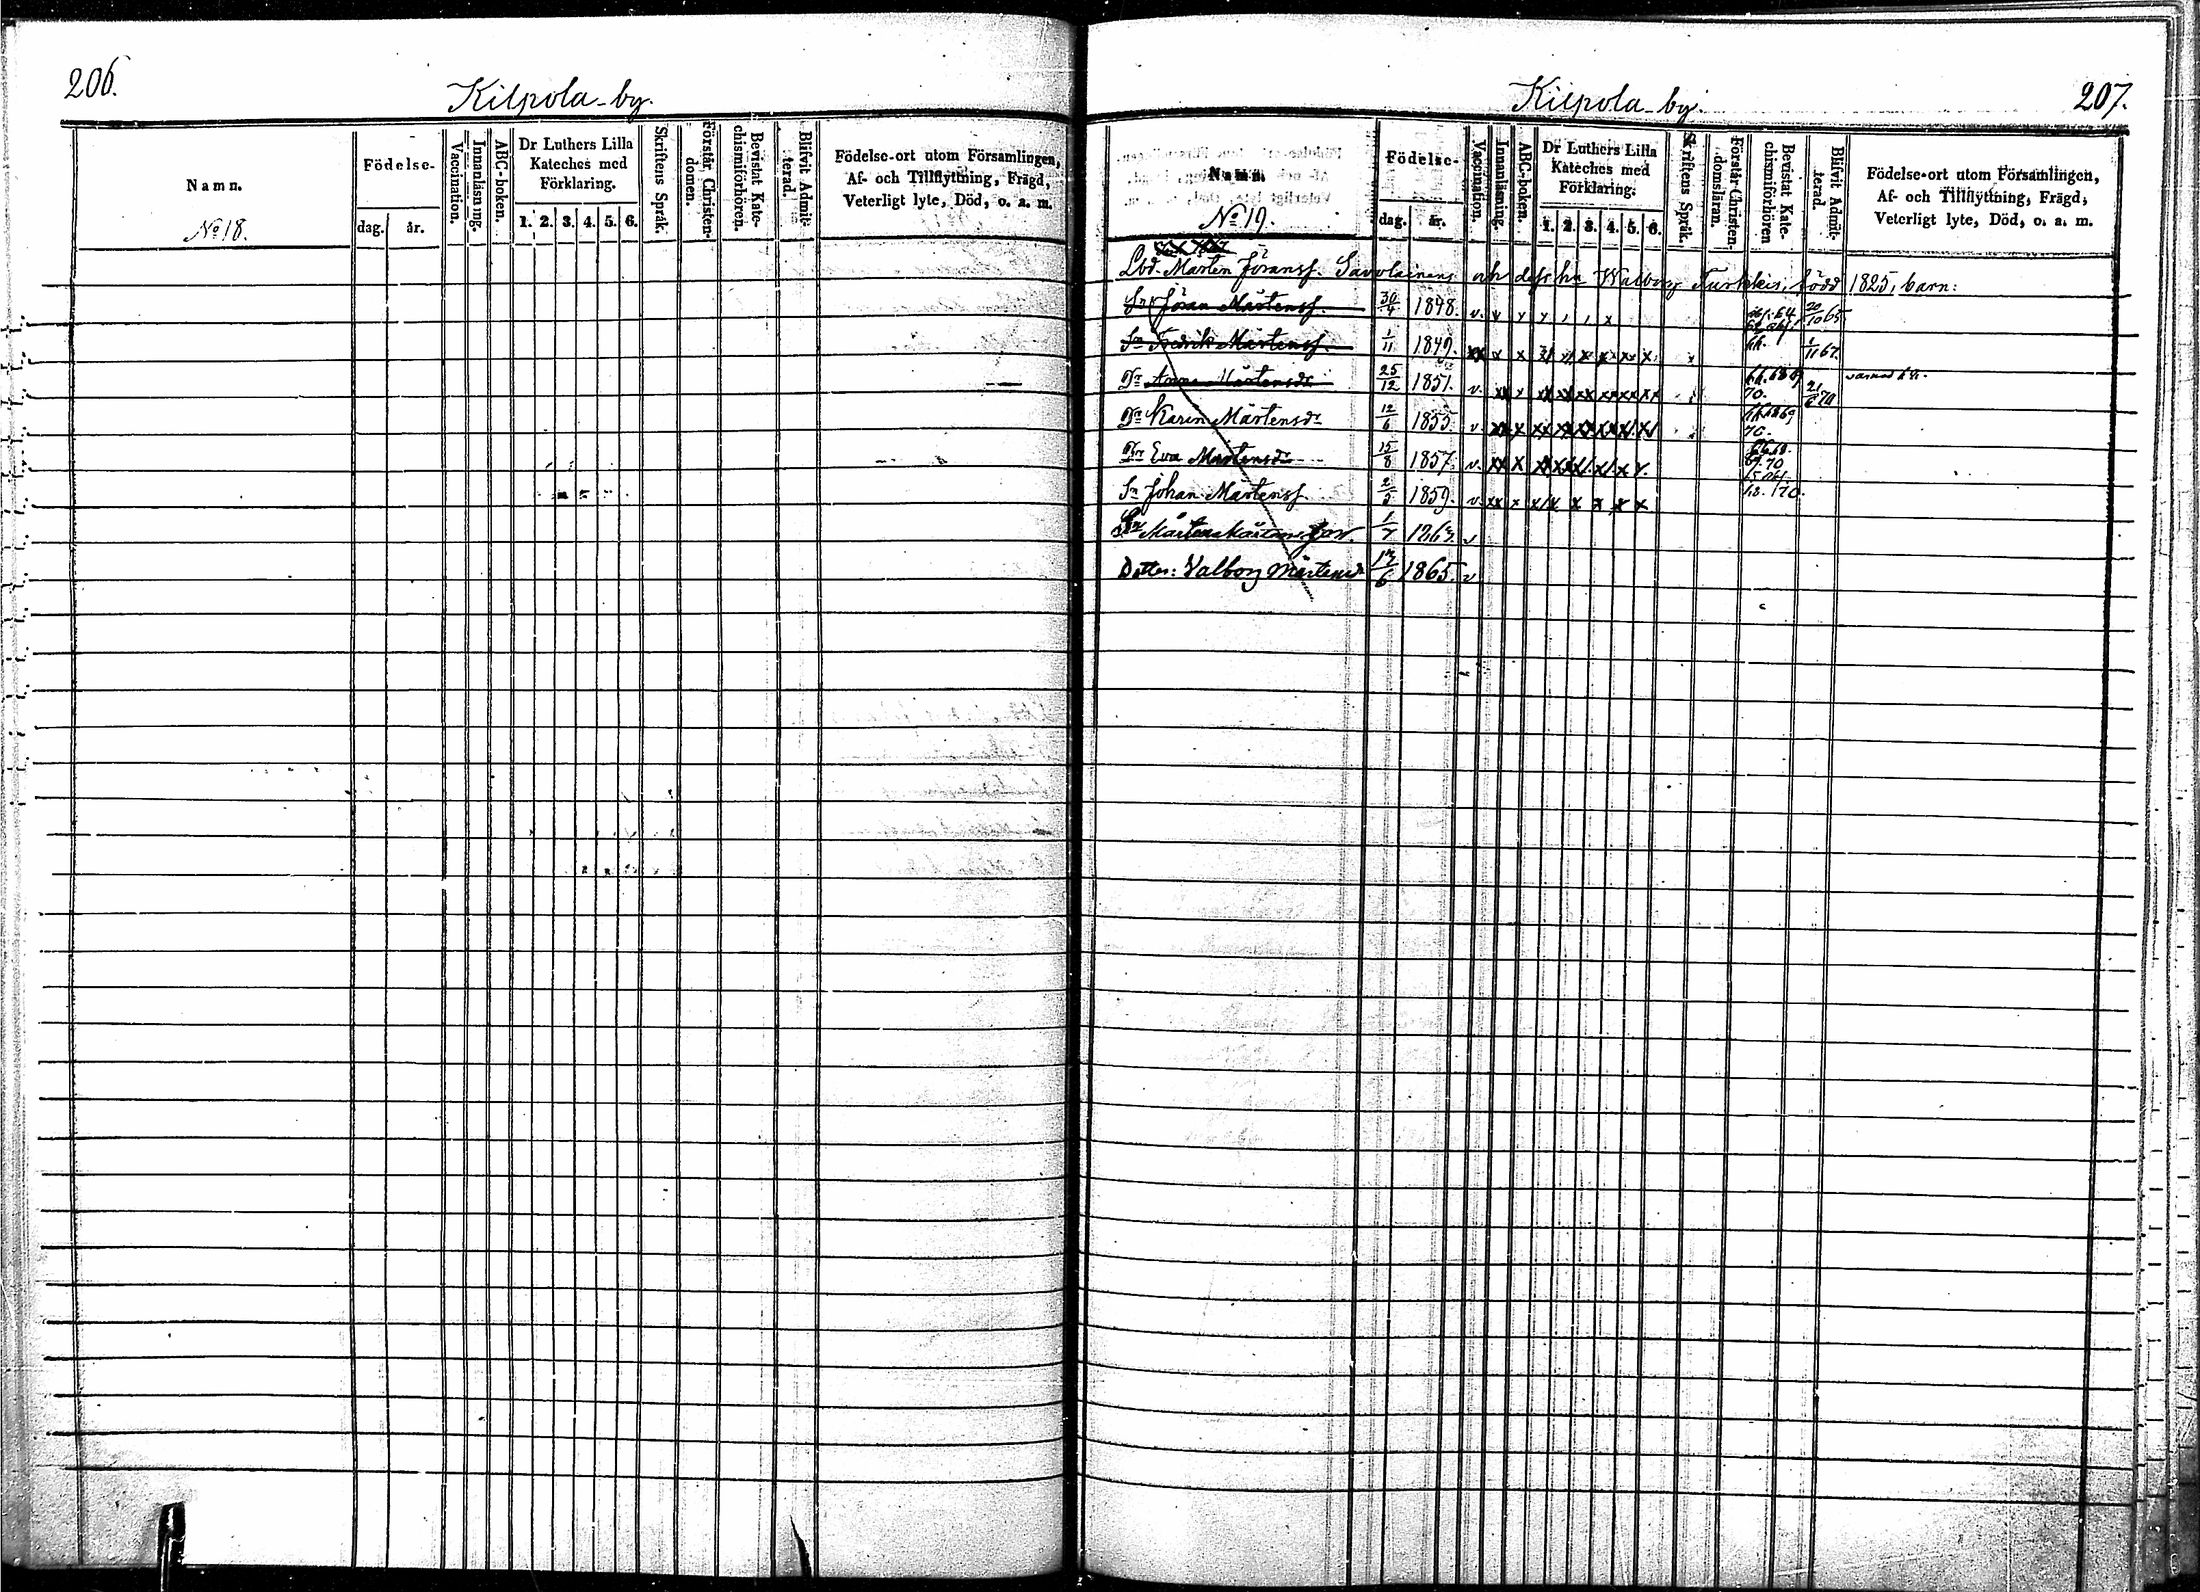 206.
Kilpola by.
Namn.
No 18.
Födelse-
dag. år.
Vaccination.
Innanläsning.
ABC-boken.
Dr Luthers Lilla Kateches med Förklaring.
1. 2. 3. 4. 5. 6.
Skriftens Språk.
Förstår Christendomen.
Bevistat Katechismiförhören.
Blifvit Admitterad.
Födelse-ort utom Församlingen,
Af- och Tillflyttning, Frägd,
Veterligt lyte, Död, o. a. m.
Kilpola by.
207.
Namn.
No 19.
Födelse-
dag. år.
Vaccination.
Innanläsning.
ABC-boken.
Dr Luthers Lilla
Kateches med
Förklaring.
1. 2. 3. 4. 5. 6.
Skriftens Språk.
Förstår Christendomsläran.
Bevistat Katechismiförhören
Blifvit Admitterad.
Födelse-ort utom Församlingen,
Af- och Tillflyttning, Frägd,
Veterligt lyte, Död, o. a. m.
Lbd. Mårten Göransf. Savolainens och dess hu Walborg Turkkis, född 1825, barn:
Sn Göran Mårtensf. 30/4 1848. v. 20/10 65
Sn Fredrik Mårtensf. 1/11 1849. 66. 1/11 67.
Dr Anna Mårtensdr 25/12 1851. v. 70.
Dr Karin Mårtensdr 12/6 1855. v 70.
Dr Eva Mårtensdr 15/8 1857. v. 70
Sn Johan Mårtensf. 1859. v.
Sn Mårten Mårtensson. 1/7 1863. v
Dotter: Valborg Mårtensdr 1865. v